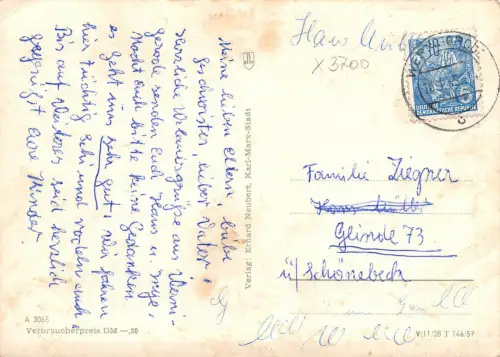 Meine lieben Eltern, liebe
Geschwister, lieber Vater!
Herzliche Urlaubsgrüße aus Werni-
gerode senden Euch Hans u. Inge.
Macht Euch bitte keine Gedanken
es geht uns sehr gut, wir fahren
hier tüchtig Ski und rodeln auch.
Bis auf Weiteres seid herzlich
gegrüßt Eure Kinder.
A 3068
Verbraucherpreis DM —,20
Verlag: Erhard Neubert, Karl-Marx-Stadt
Hans
X 3700
10
DEUTSCHE
DEMOKRATISCHE REPUBLIK
Familie Ziegner
Hans
Glinde 73
ü/Schönebeck
V/11/28 T 146/57